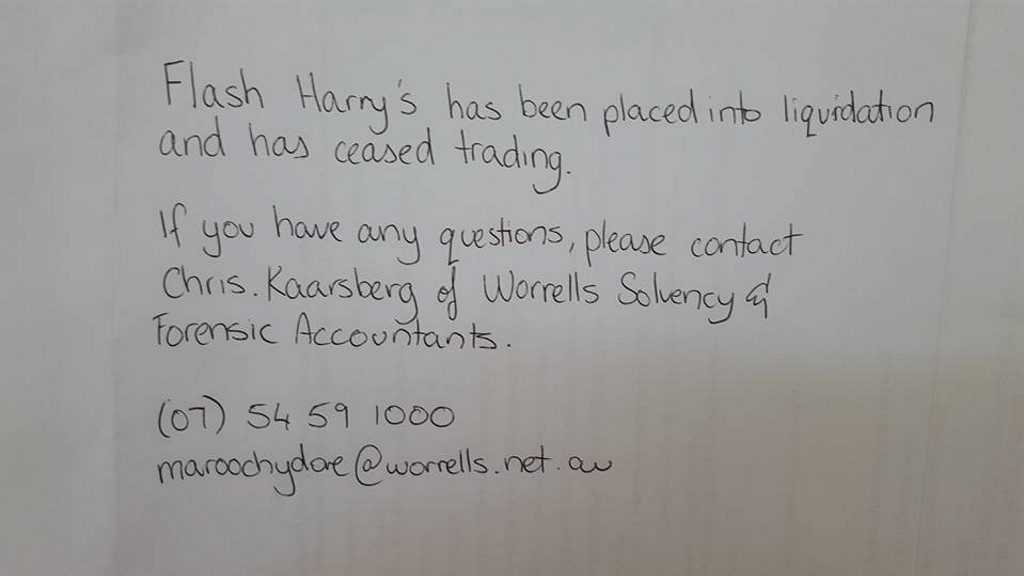 Flash Harry's has been placed into liquidation
and has ceased trading.
If you have any questions, please contact
Chris. Kaarsberg of Worrells Solvency &
Forensic Accountants.
(07) 54 59 1000
maroochydore@worrells.net.au